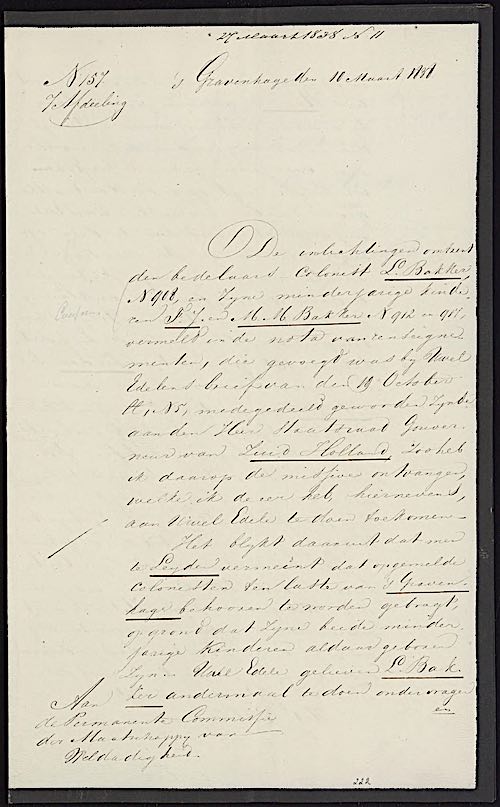 27 Maart 1838 No 11
N 157
7 Afdeeling
's Gravenhage den 10 Maart 1838
De inlichtingen omtrent
den bedelaars-Colonist L. Bakker,
N 908, en Zyne minderjarige kinde-
ren P. J. en M. H. Bakker N 912 en 917,
vermeld in de nota van renseigne-
menten, die gevoegd was by Uwel
Edelens brief van den 19 October
ll, N 5, medegedeeld geworden Zynde
aan den Heer Staatsraad Gouver-
neur van Zuid Holland, Zoo heb
ik daarop de missive ontvangen,
welke ik de eer heb, hiernevens,
aan Uwel Edele te doen toekomen.-
Het blykt daaruit dat men
te Leyden vermeent dat opgemelde
Colonisten ten laste van 's Graven-
hage behooren te worden gebragt,
op grond dat Zyne beide minder-
jarige kinderen aldaar geboren
Zyn. Uwel Edele gelieven L. Bak-
ker andermaal te doen ondervragen
en
Aan
de Permanente Commissie
der Maatschappy van
Weldadigheid.
222